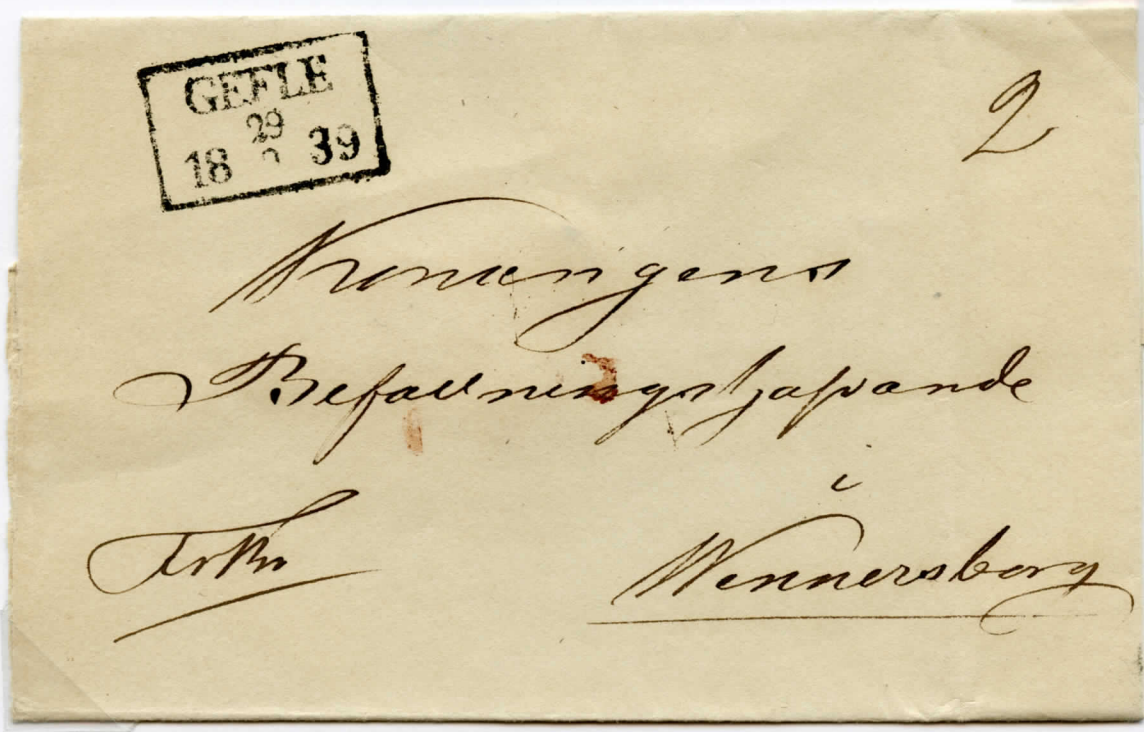 GEFLE
29
18 39
2
Konungens
Befallningshafvande
i
Wennersborg